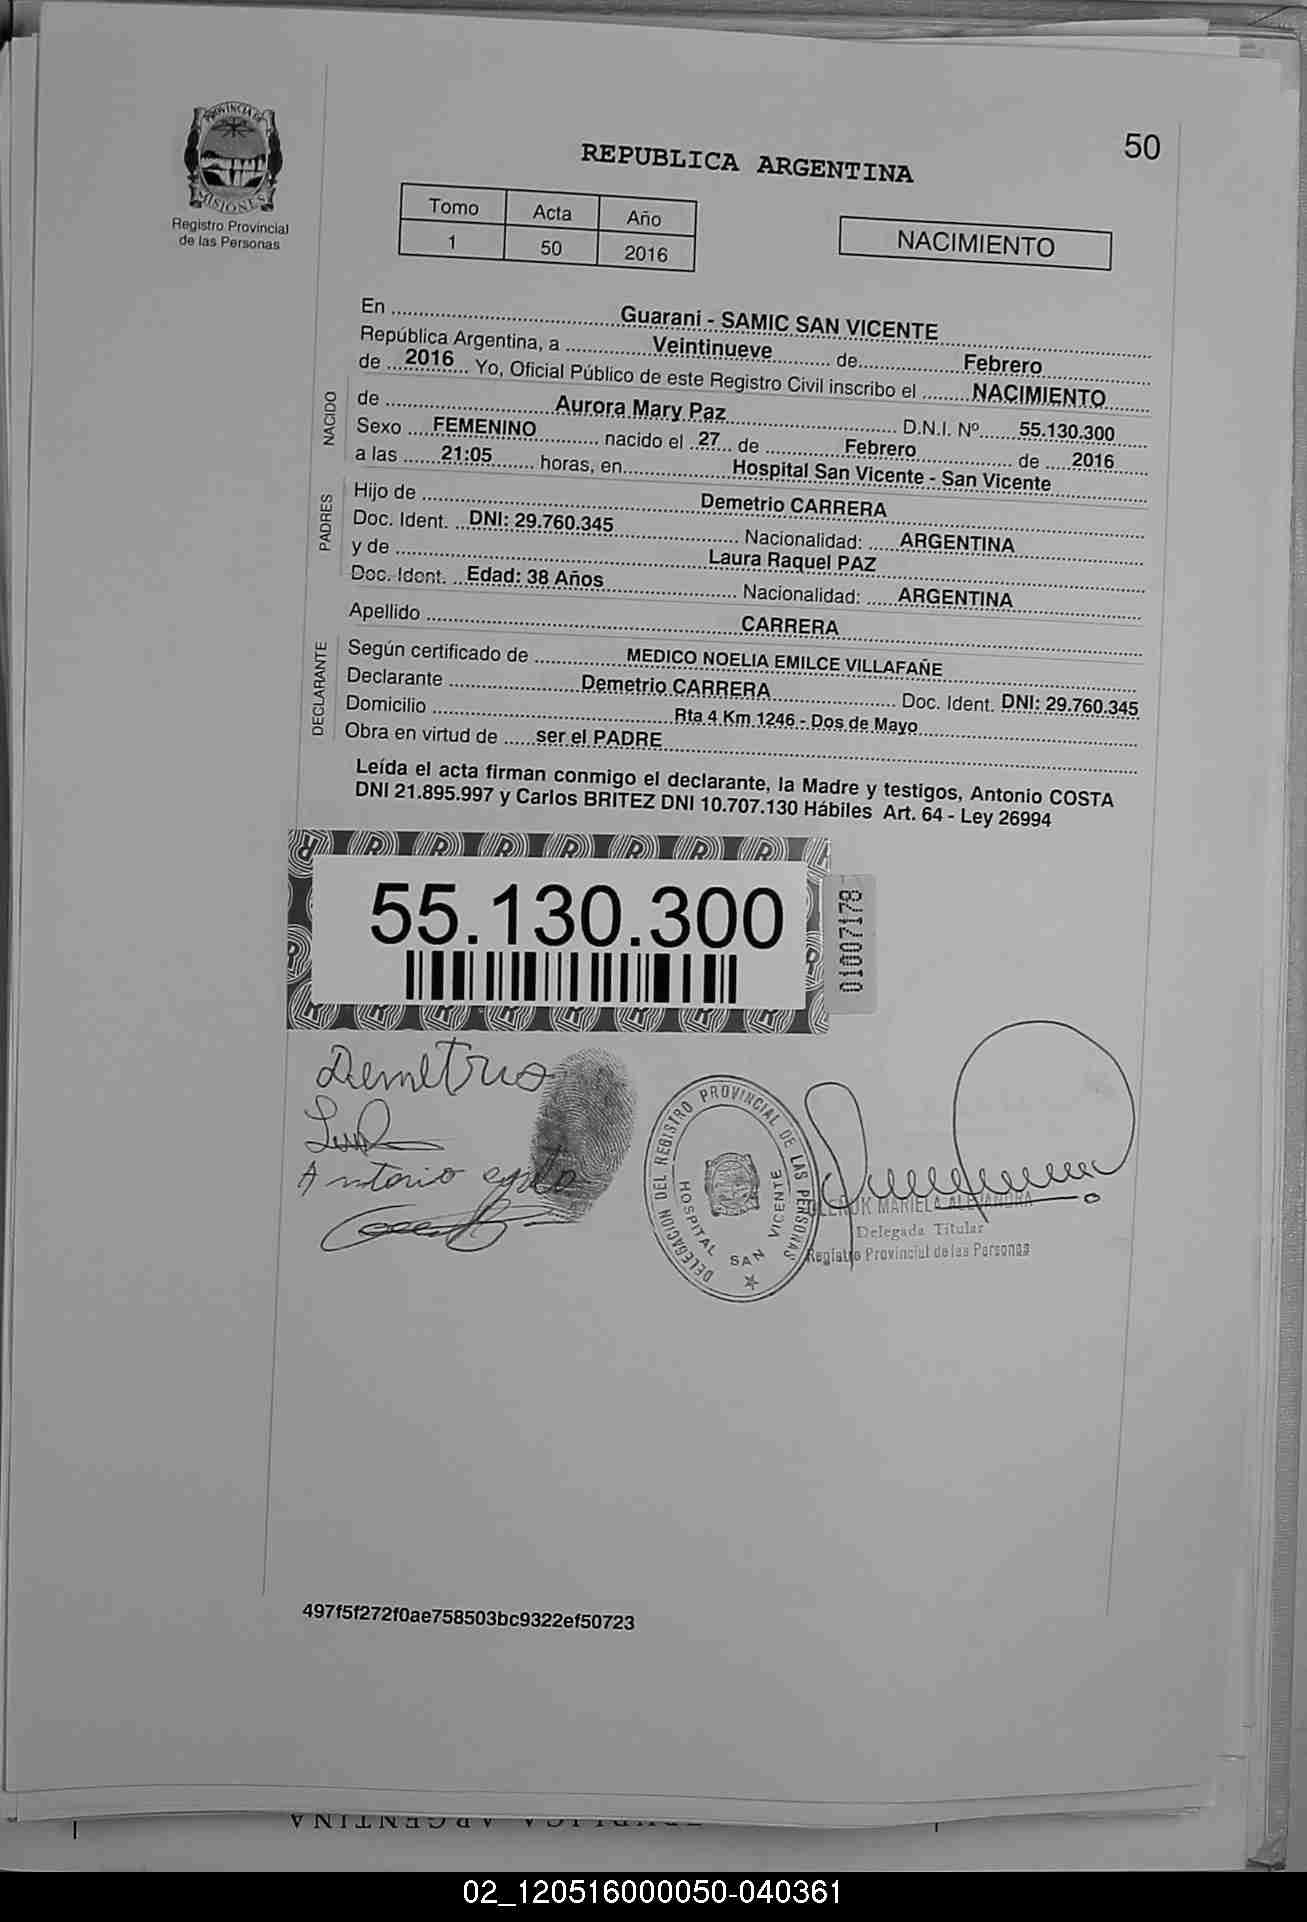 PROVINCIA DE
MISIONES
Registro Provincial
de las Personas
50
REPUBLICA ARGENTINA
Tomo Acta Año
1 50 2016
NACIMIENTO
En Guarani - SAMIC SAN VICENTE
República Argentina, a Veintinueve de Febrero
de 2016 Yo, Oficial Público de este Registro Civil inscribo el NACIMIENTO
NACIDO
de Aurora Mary Paz D.N.I. Nº 55.130.300
Sexo FEMENINO nacido el 27 de Febrero de 2016
a las 21:05 horas, en Hospital San Vicente - San Vicente
PADRES
Hijo de Demetrio CARRERA
Doc. Ident. DNI: 29.760.345 Nacionalidad: ARGENTINA
y de Laura Raquel PAZ
Doc. Ident. Edad: 38 Años Nacionalidad: ARGENTINA
Apellido CARRERA
DECLARANTE
Según certificado de MEDICO NOELIA EMILCE VILLAFAÑE
Declarante Demetrio CARRERA Doc. Ident. DNI: 29.760.345
Domicilio Rta 4 Km 1246 - Dos de Mayo
Obra en virtud de ser el PADRE
Leída el acta firman conmigo el declarante, la Madre y testigos, Antonio COSTA
DNI 21.895.997 y Carlos BRITEZ DNI 10.707.130 Hábiles Art. 64 - Ley 26994
55.130.300
01007178
Demetrio
Antonio costa
DELEGACION DEL REGISTRO PROVINCIAL DE LAS PERSONAS
HOSPITAL SAN VICENTE
MARIELA ALEJANDRA
Delegada Titular
Registro Provincial de las Personas
497f5f272f0ae758503bc9322ef50723
REPUBLICA ARGENTINA
02_120516000050-040361